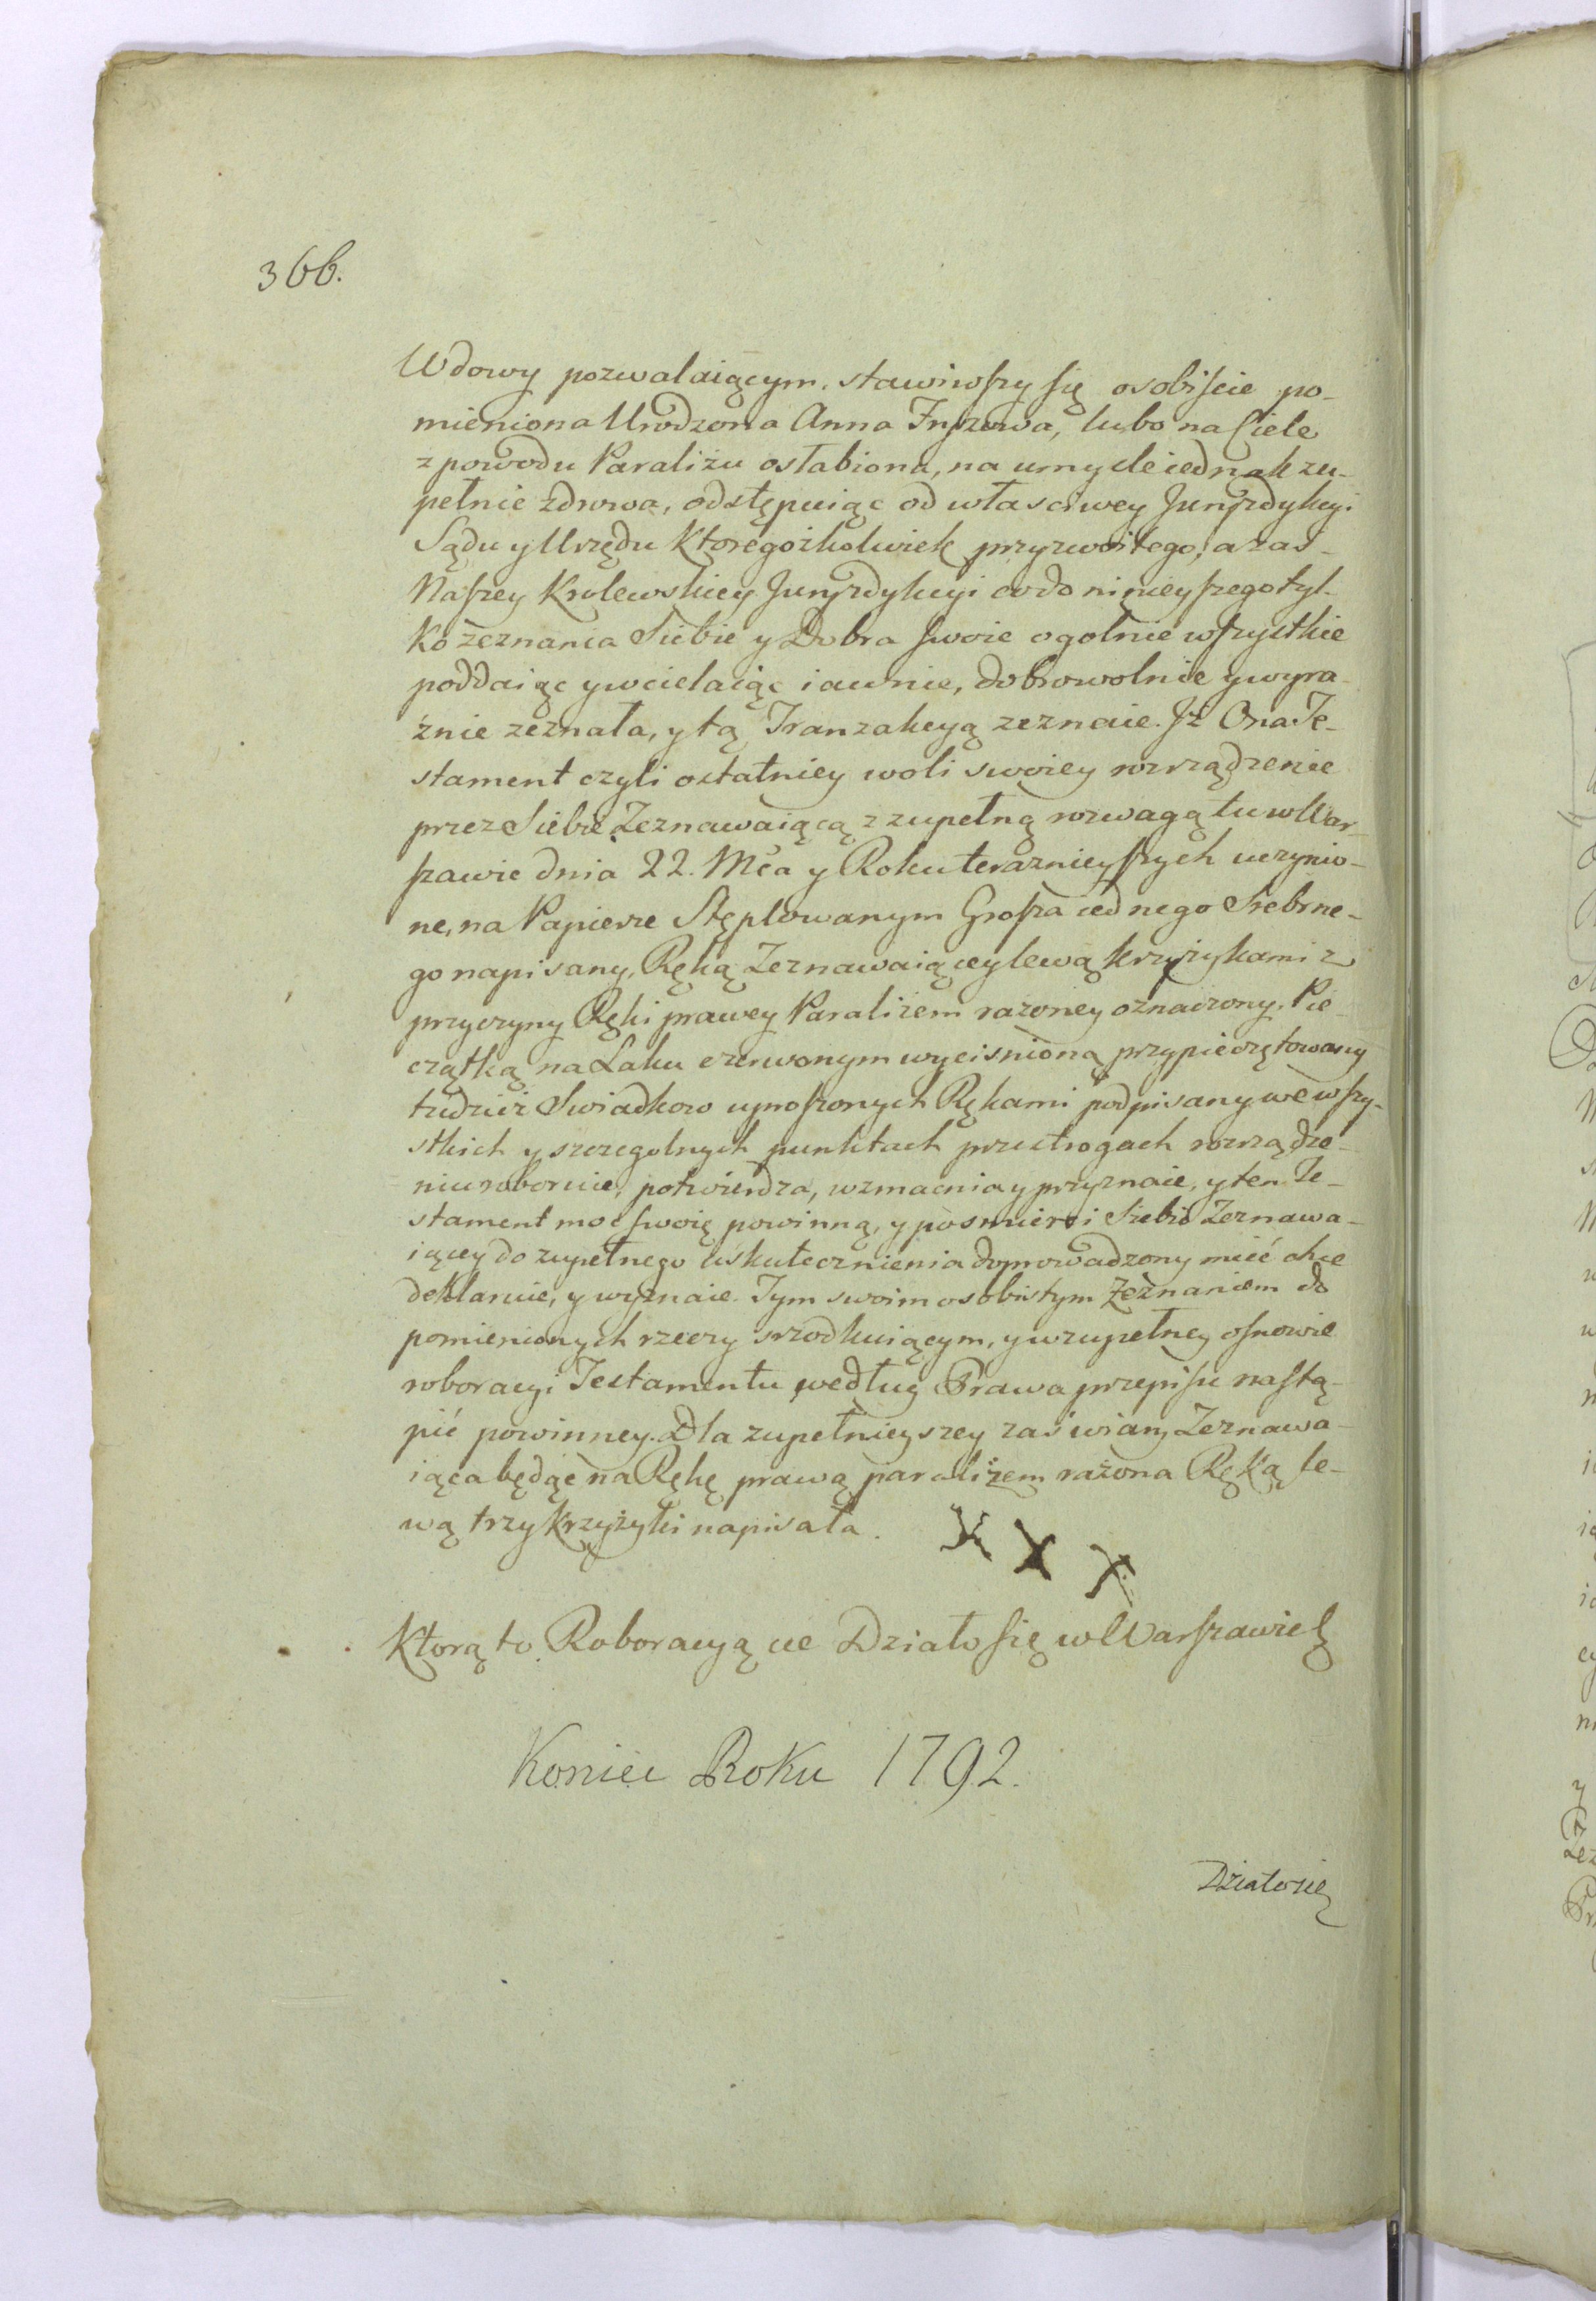 366.
Wdowy pozwalaiącym, stawiwszy się osobiście po-
mieniona Urodzona Anna Fryzowa, lubo na Ciele
z powodu Paraliżu osłabiona, na umyśle iednak zu-
pełnie zdrowa, odstępuiąc od własciwey Juryzdykcyi
Sądu y Urzędu któregożkolwiek przyzwoitego, a zaś
Naszey Krolewskiey Juryzdykcyi co do ninieyszego tyl-
ko zeznania Siebie y Dobra swoie ogolnie wszystkie
poddaiąc y wcielaiąc iawnie, dobrowolnie y wyra-
źnie zeznała, y tą Tranzakcyą zeznaie. Jż Ona Te-
stament czyli ostatniey woli swoiey rozrządzenie
przez Siebie Zeznawaiącą z zupełną rozwagą tu w War-
szawie dnia 22. Mca y Roku teraznieyszych uczynio-
ne, na Papierze Stęplowanym Grosza iednego Srebrne-
go napisany, Ręką Zeznawaiącey lewą krzyżykami z
przyczyny Ręki prawey Paraliżem rażoney oznaczony. Pie-
czątką na Laku czerwonym wycisnioną przypieczętowany
tudzież Swiadkow uproszonych Rękami podpisany we wszy-
stkich y szczegolnych punktach przestrogach rozrządze-
niu roboruie, potwierdza, wzmacnia y przyznaie, y ten Te-
stament moc swoię powinną, y po smierci Siebie Zeznawa-
iącey do zupełnego uskutecznienia doprowadzony mieć chce
deklaruie, y wyznaie. Tym swoim osobistym Zeznaniem do
pomienionych rzeczy srzodkuiącym, y w zupełney osnowie
roboracyi Testamentu według Prawa przepisu nastą-
pić powinney. Dla zupełnieyszey zaś wiary Zeznawa-
iąca będąc na Rękę prawą paraliżem rażona Ręką le-
wą trzy krzyżyki napisała. X X X
Ktorą to Roboracyą etc Działo się w Warszawie
Koniec Roku 1792.
Działo się